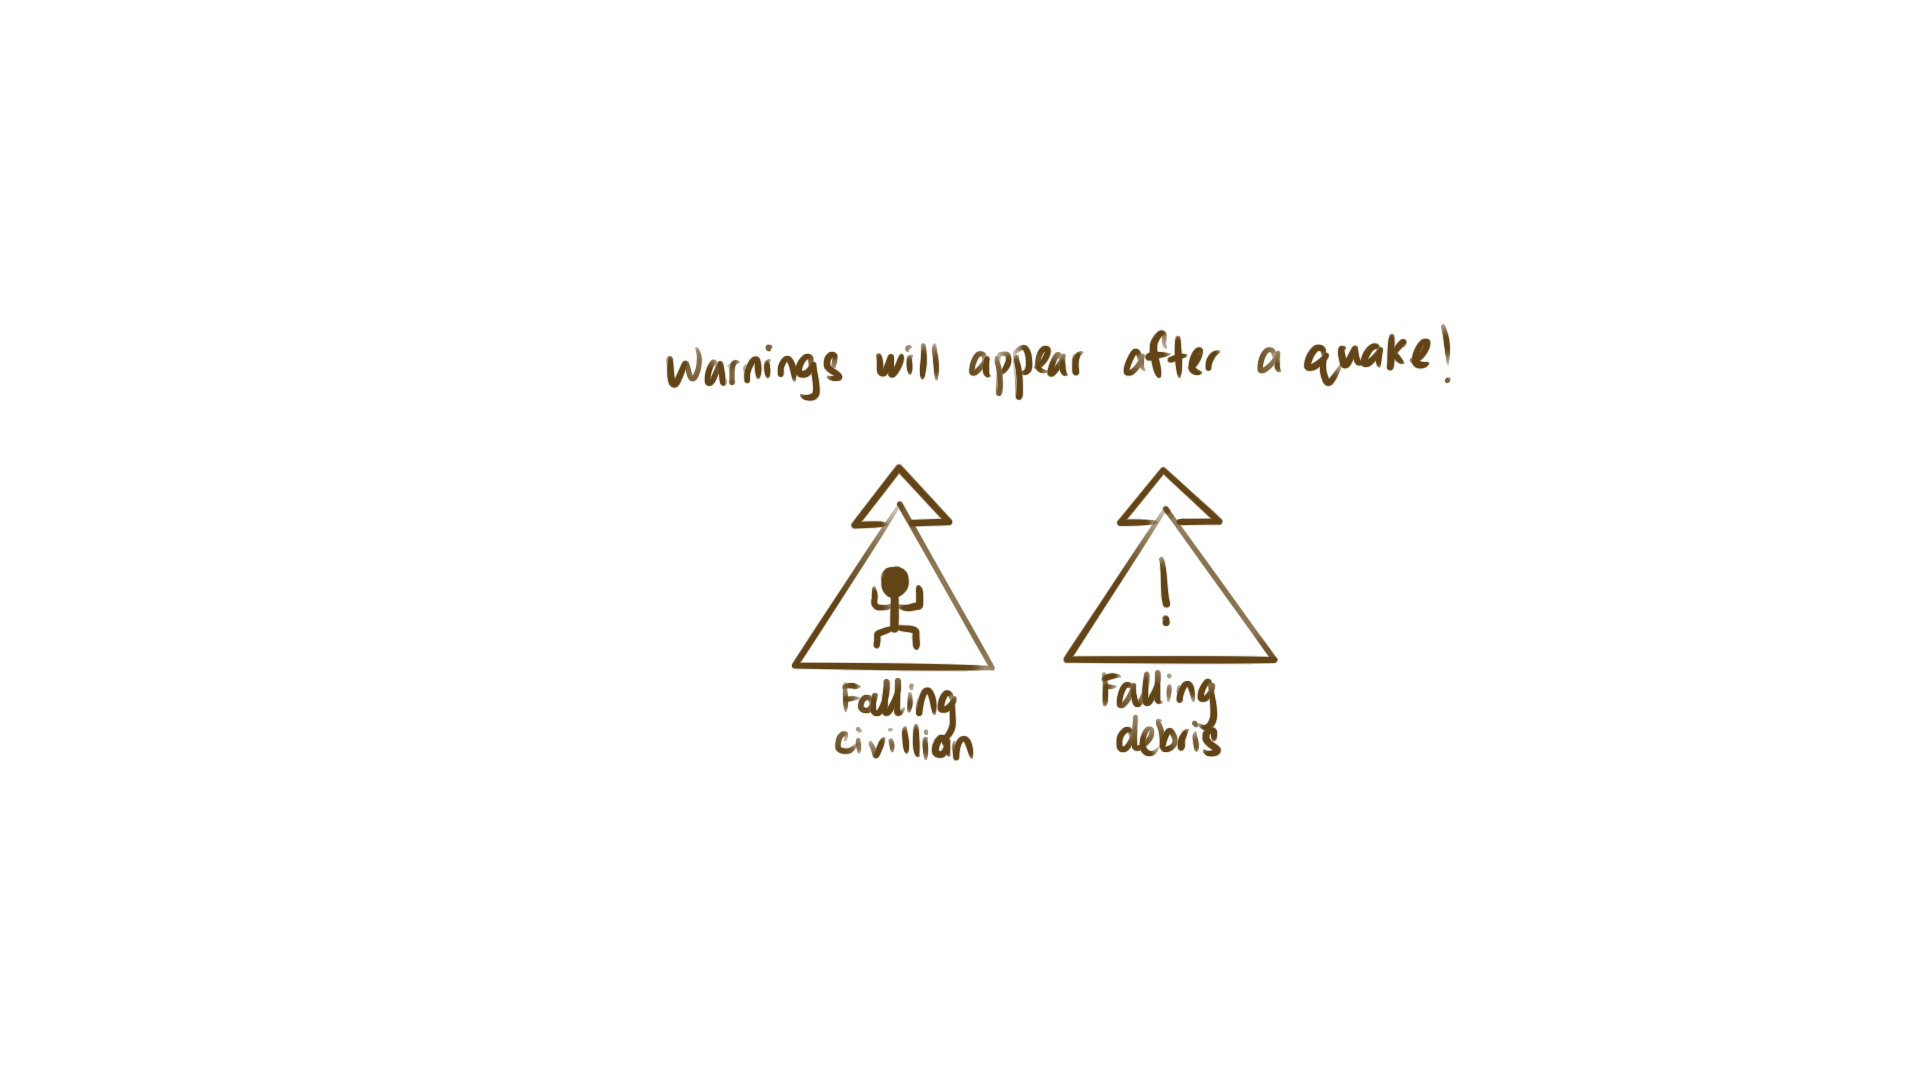 Warnings will appear after a quake!
!
Falling
civillian
Falling
debris